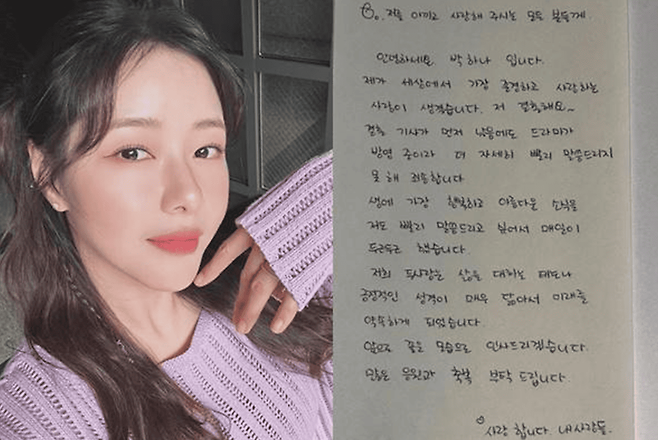 저를 아끼고 사랑해 주시는 모든 분들께.
안녕하세요 박하나 입니다.
제가 세상에서 가장 존경하고 사랑하는
사람이 생겼습니다. 저 결혼해요~
결혼 기사가 먼저 났음에도 드라마가
방영 중이라 더 자세히 빨리 말씀드리지
못 해 죄송합니다
생에 가장 행복하고 아름다운 소식을
저도 빨리 말씀드리고 싶어서 매일이
두근두근 했습니다.
저희 두사람은 삶을 대하는 태도나
긍정적인 성격이 매우 닮아서 미래를
약속하게 되었습니다.
앞으로 좋은 모습으로 인사드리겠습니다.
많은 응원과 축복 부탁 드립니다.
사랑 합니다. 내사람들.